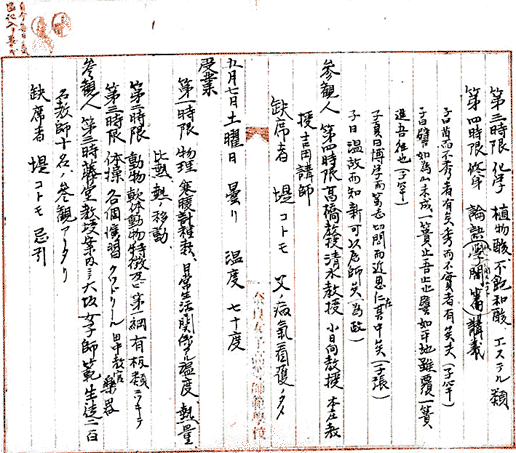 第三時限 化学 植物酸、不飽和酸 エステル類
第四時限 修身 論語(学問ノ書)講義
子曰苗而不秀者有矣夫秀而不実者有矣夫(子罕)
子曰譬如為山未成一簣止吾止也譬如平地雖覆一簣
進吾往也(子罕)
子夏曰博学而篤志切問而近思仁在其中矣(子張)
子曰温故而知新可以為師矣(為政)
参観人 第四時限高橋教授清水教授 小日向教授 本庄教
授 吉田講師
缺席者 堤コトモ 父ノ病気看護ノタメ
五月七日 土曜日 曇リ 温度 七十度
授業
第一時限 物理 寒暖計種類、日常生活関係アル温度 熱量
比熱、熱ノ移動
第二時限 動物 軟体動物特徴及ビ第一綱有板類
第三時限 体操 各個演習 クワドリール 田中教官
参観人 第三時 教授案内ニテ大阪女子師範生徒二百
名教師十名ノ参観アリタリ
缺席者 堤コトモ 忌引
奈良女子高等師範学校